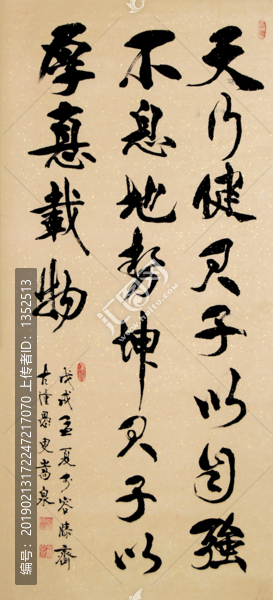 天行健君子以自强
不息地势坤君子以
厚德载物
戊戌孟夏于容膝斋
编号：20190213172247217070 上传者ID：1352513